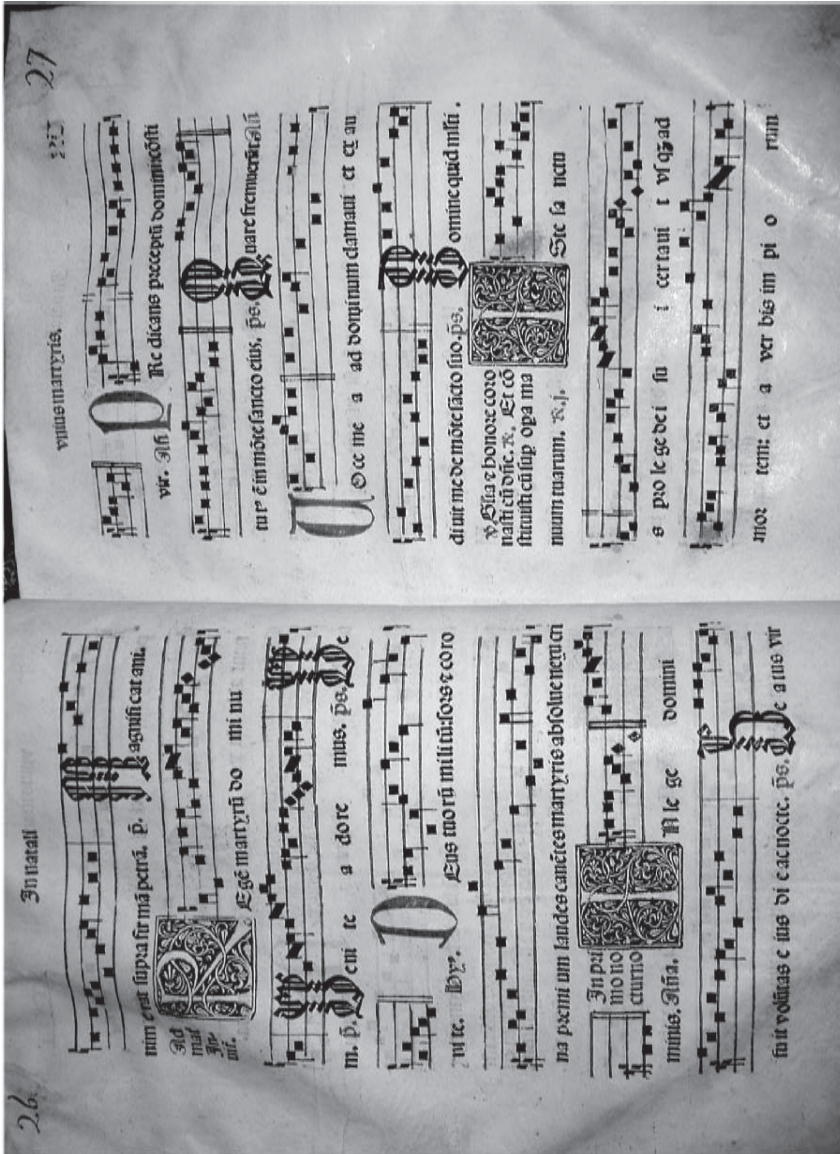 26
In natali
nim erat supra firmā petrā. p̄. Magnificat ani.
Ad
mat
In
uit.
Regē martyrū do mi nu
m. p̄. Venite a dore mus. p̄s. Ve
ni te. Hy⁹.
Deus tuorū militū: sors et coro
na premi um laudes canētes martyris absolue nexu cri
minis. Añа.
In pri
mo no
cturno
In le ge domini
fuit volūtas e ius di e ac nocte. p̄s. Be a tus vir
27
vnius martyris.
vir. Añ
Predicans preceptū domini: cōsti
tut⁹ ē in mōte sancto eius. p̄s. Quare fremuerūt. Añ
Voce me a ad dominum clamaui et ex au
diuit me de mōte sācto suo. p̄s. Domine quid mlti.
℣ Glia et honore coro
nasti eū dñe. ℟. Et cō
stituisti eū sup opa ma
nuum tuarum. ℟. j.
Iste san
s pro lege dei su i certaui t vsq; ad
mor tem: et a ver bis im pi o rum